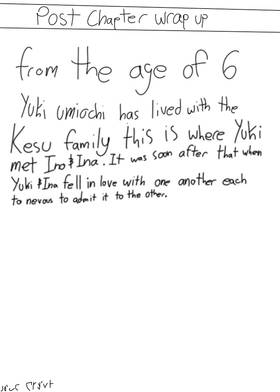 Post Chapter wrap up
from the age of 6
Yuki umiochi has lived with the
Kesu family this is where Yuki
met Ino & Ina. It was soon after that when
Yuki & Ina fell in love with one another each
to nevous to admit it to the other.